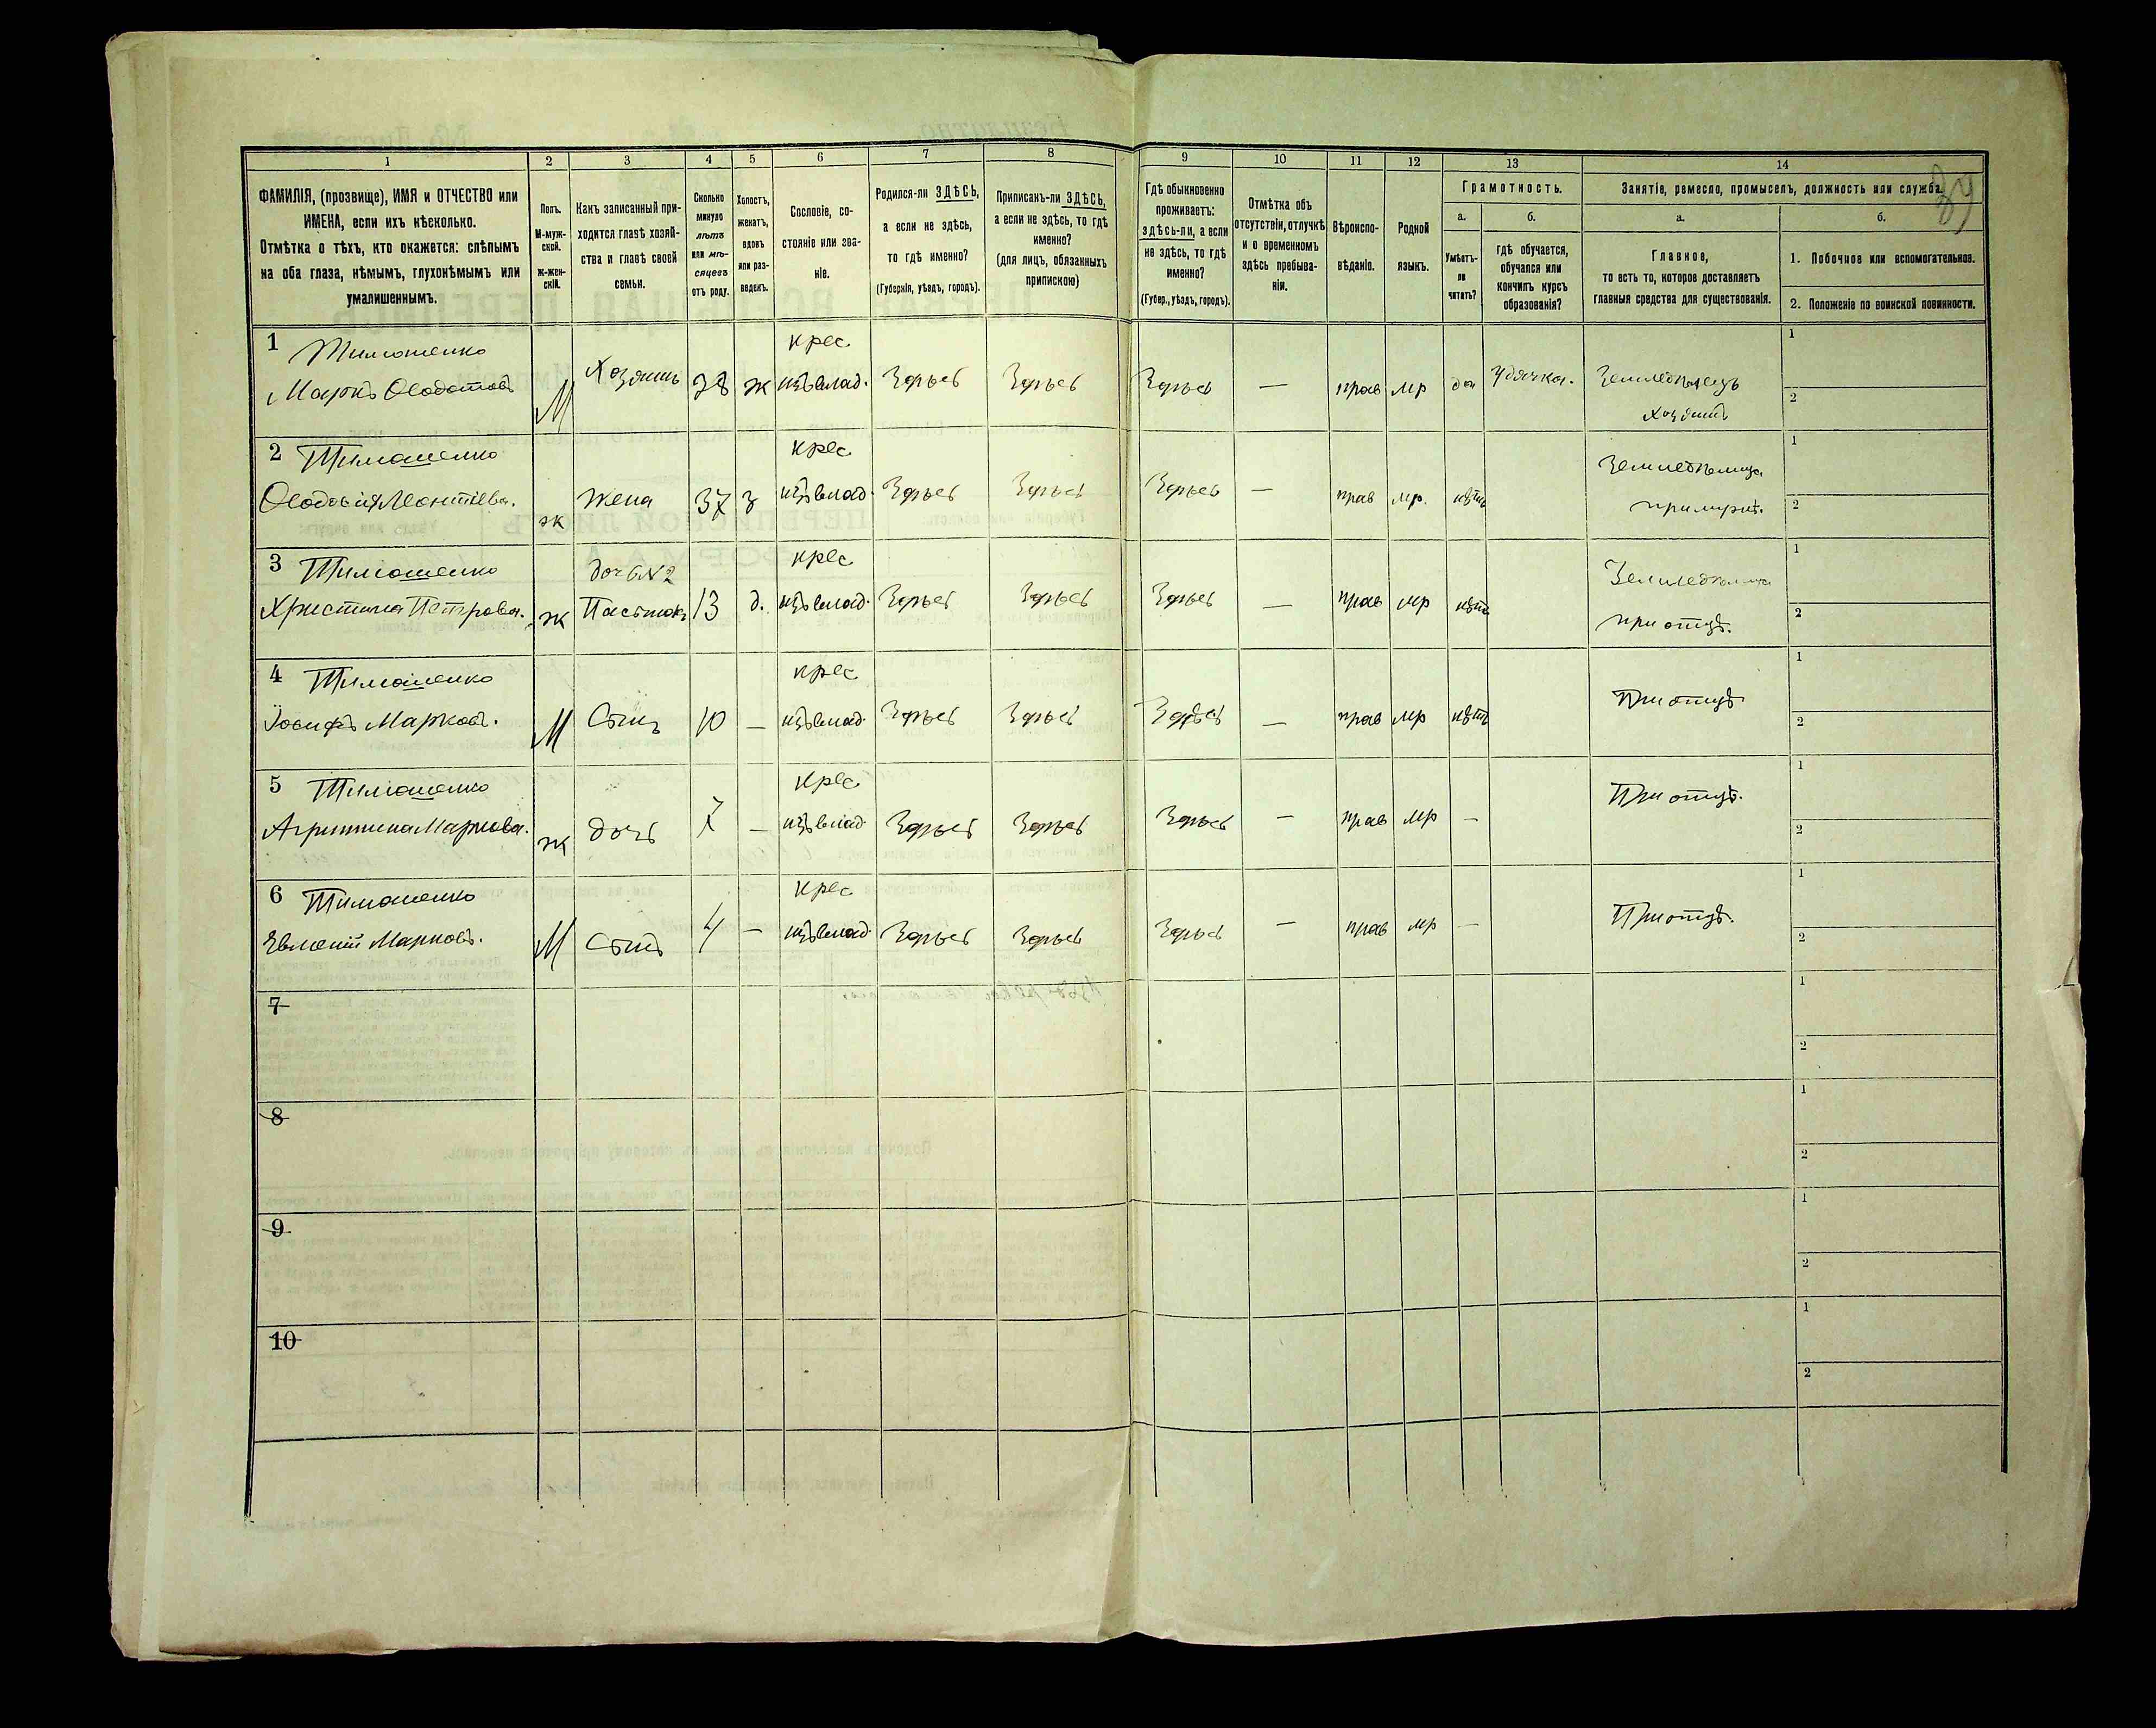 1 2 3 4 5 6 7 8 9 10 11 12 13 14
ФАМИЛІЯ, (прозвище), ИМЯ и ОТЧЕСТВО или
ИМЕНА, если ихъ нѣсколько.
Отмѣтка о тѣхъ, кто окажется: слѣпымъ
на оба глаза, нѣмымъ, глухонѣмымъ или
умалишеннымъ.
Полъ.
М-муж-
ской.
Ж-жен-
скій.
Какъ записанный при-
ходится главѣ хозяй-
ства и главѣ своей
семьи.
Сколько
минуло
лѣтъ
или мѣ-
сяцевъ
отъ роду.
Холостъ,
женатъ,
вдовъ
или раз-
веденъ.
Сословіе, со-
стояніе или зва-
ніе.
Родился-ли ЗДѢСЬ,
а если не здѣсь,
то гдѣ именно?
(Губернія, уѣздъ, городъ).
Приписанъ-ли ЗДѢСЬ,
а если не здѣсь, то гдѣ
именно?
(для лицъ, обязанныхъ
припискою)
Гдѣ обыкновенно
проживаетъ:
здѣсь-ли, а если
не здѣсь, то гдѣ
именно?
(Губер., уѣздъ, городъ).
Отмѣтка объ
отсутствіи, отлучкѣ
и о временномъ
здѣсь пребыва-
ніи.
Вѣроиспо-
вѣданіе.
Родной
языкъ.
Грамотность.
а.
Умѣетъ-
ли
читать?
б.
гдѣ обучается,
обучался или
кончилъ курсъ
образованія?
Занятіе, ремесло, промыселъ, должность или служба.
89
а.
Главное,
то есть то, которое доставляетъ
главныя средства для существованія.
б.
1. Побочное или вспомогательное.
2. Положеніе по воинской повинности.
1 Тимошенко крес. 1
Маркъ Ѳеодотовъ М Хозяинъ 38 ж изъ влад. Здѣсь Здѣсь Здѣсь — прав мр да У дячка. Земледѣлецъ
хозяинъ 2
2 Тимошенко крес. 1
Ѳеодосія Леонтіева. ж Жена 37 з изъ влад. Здѣсь Здѣсь Здѣсь — прав мр. нѣтъ Земледѣлица
при мужѣ. 2
3 Тимошенко дочь №2 крес 1
Христина Петрова. ж 13 д. изъ влад. Здѣсь Здѣсь Здѣсь — прав мр нѣтъ Земледѣлица
при отцѣ. 2
4 Тимошенко крес 1
Іосифъ Марковъ. М Сынъ 10 — изъ влад. Здѣсь Здѣсь Здѣсь — прав мр нѣтъ При отцѣ 2
5 Тимошенко крес. 1
Агрипина Маркова. ж дочь 7 — изъ влад. Здѣсь Здѣсь Здѣсь — прав мр — При отцѣ. 2
6 Тимошенко крес. 1
Евменій Марковъ. М Сынъ 4 — изъ влад. Здѣсь Здѣсь Здѣсь — прав мр — При отцѣ. 2
7 1
2
8 1
2
9 1
2
10 1
2